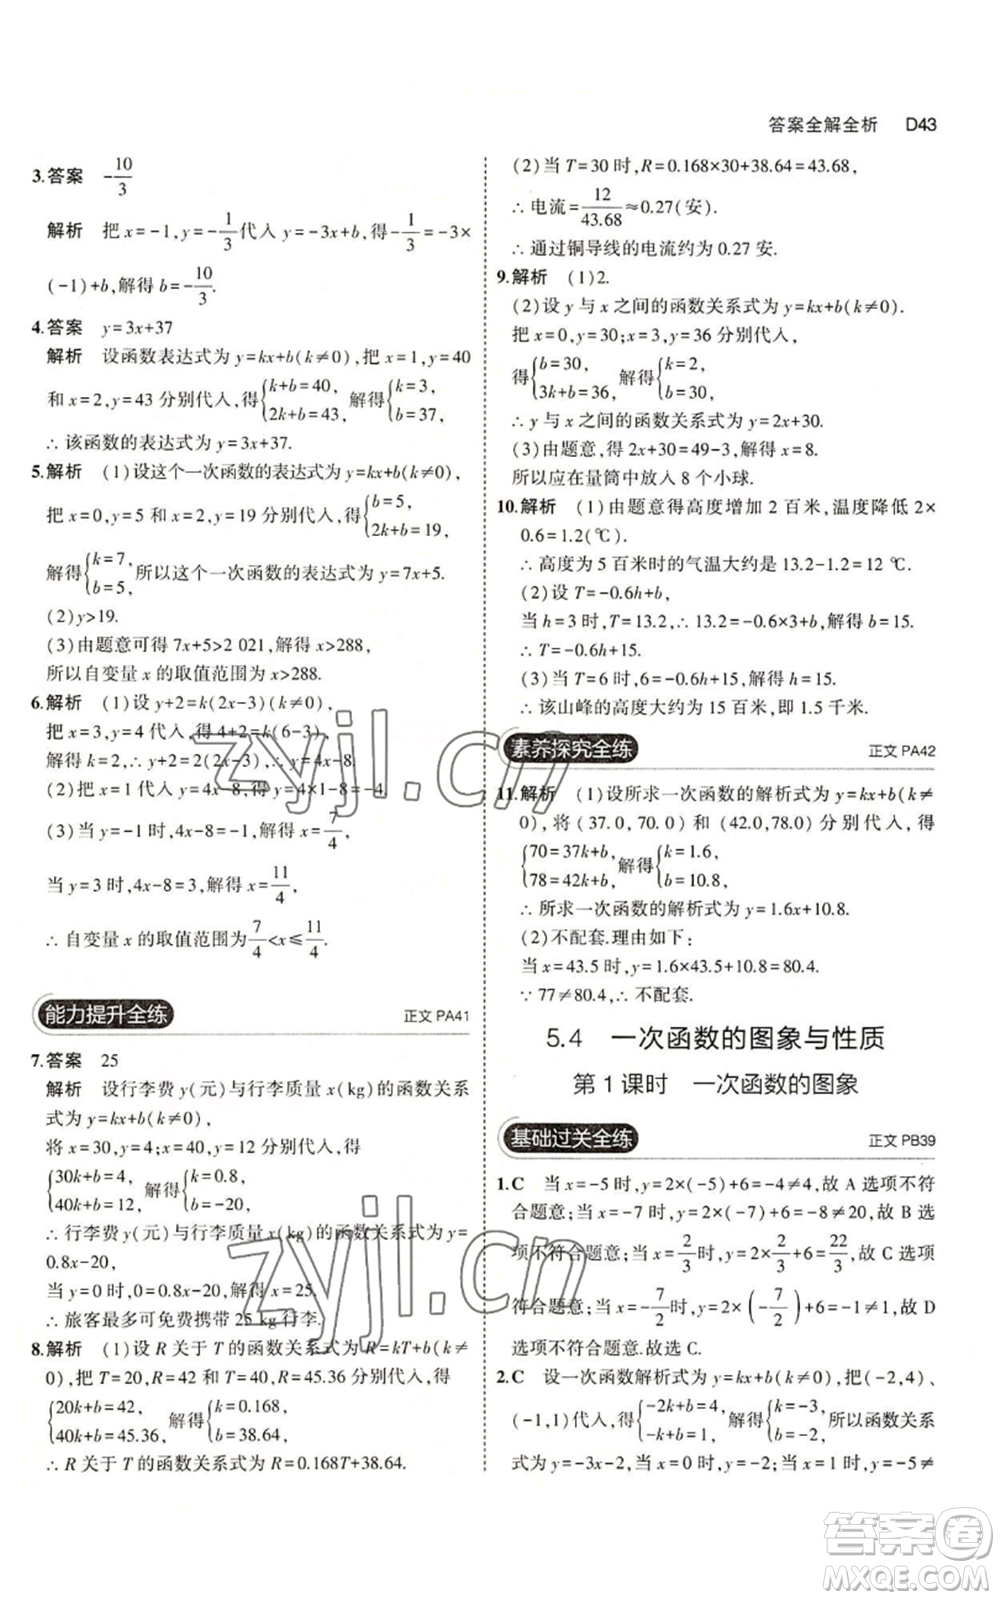 答案全解全析 D43
3.答案 -10/3
解析 把 x=-1,y=-1/3代入 y=-3x+b,得-1/3=-3×
(-1)+b,解得 b=-10/3.
4.答案 y=3x+37
解析 设函数表达式为 y=kx+b(k≠0),把 x=1,y=40
和 x=2,y=43 分别代入,得{k+b=40, 2k+b=43,解得{k=3, b=37,
∴该函数的表达式为 y=3x+37.
5.解析 (1)设这个一次函数的表达式为 y=kx+b(k≠0),
把 x=0,y=5 和 x=2,y=19 分别代入,得{b=5, 2k+b=19,
解得{k=7, b=5,所以这个一次函数的表达式为 y=7x+5.
(2)y>19.
(3)由题意可得 7x+5>2 021,解得 x>288.
所以自变量 x 的取值范围为 x>288.
6.解析 (1)设 y+2=k(2x-3)(k≠0),
把 x=3,y=4 代入,得 4+2=k(6-3),
解得 k=2,∴y+2=2(2x-3),∴y=4x-8.
(2)把 x=1 代入 y=4x-8,得 y=4×1-8=-4.
(3)当 y=-1 时,4x-8=-1,解得 x=7/4,
当 y=3 时,4x-8=3,解得 x=11/4,
∴自变量 x 的取值范围为7/4<x≤11/4.
能力提升全练 正文 PA41
7.答案 25
解析 设行李费 y(元)与行李质量 x(kg)的函数关系
式为 y=kx+b(k≠0),
将 x=30,y=4;x=40,y=12 分别代入,得
{30k+b=4, 40k+b=12,解得{k=0.8, b=-20,
∴行李费 y(元)与行李质量 x(kg)的函数关系式为 y=
0.8x-20,
当 y=0 时,0=0.8x-20,解得 x=25,
∴旅客最多可免费携带 25 kg 行李.
8.解析 (1)设 R 关于 T 的函数关系式为 R=kT+b(k≠
0),把 T=20,R=42 和 T=40,R=45.36 分别代入得
{20k+b=42, 40k+b=45.36,解得{k=0.168, b=38.64,
∴R 关于 T 的函数关系式为 R=0.168T+38.64.
(2)当 T=30 时,R=0.168×30+38.64=43.68,
∴电流=12/43.68≈0.27(安).
∴通过铜导线的电流约为 0.27 安.
9.解析 (1)2.
(2)设 y 与 x 之间的函数关系式为 y=kx+b(k≠0).
把 x=0,y=30;x=3,y=36 分别代入,
得{b=30, 3k+b=36,解得{k=2, b=30.
∴y 与 x 之间的函数关系式为 y=2x+30.
(3)由题意,得 2x+30=49-3,解得 x=8.
所以应在量筒中放入 8 个小球.
10.解析 (1)由题意得高度增加 2 百米,温度降低 2×
0.6=1.2(℃).
∴高度为 5 百米时的气温大约是 13.2-1.2=12 ℃.
(2)设 T=-0.6h+b,
当 h=3 时,T=13.2,∴13.2=-0.6×3+b,解得 b=15.
∴T=-0.6h+15.
(3)当 T=6 时,6=-0.6h+15,解得 h=15.
∴该山峰的高度大约为 15 百米,即 1.5 千米.
素养探究全练 正文 PA42
11.解析 (1)设所求一次函数的解析式为 y=kx+b(k≠
0),将(37.0,70.0)和(42.0,78.0)分别代入,得
{70=37k+b, 78=42k+b,解得{k=1.6, b=10.8,
∴所求一次函数的解析式为 y=1.6x+10.8.
(2)不配套.理由如下:
当 x=43.5 时,y=1.6×43.5+10.8=80.4.
∵77≠80.4,∴不配套.
5.4 一次函数的图象与性质
第 1 课时 一次函数的图象
基础过关全练 正文 PB39
1.C 当 x=-5 时,y=2×(-5)+6=-4≠4,故 A 选项不符
合题意;当 x=-7 时,y=2×(-7)+6=-8,故 B 选
项不符合题意;当 x=2/3时,y=2×2/3+6=22/3,故 C 选项
符合题意;当 x=-7/2时,y=2×(-7/2)+6=-1≠1,故 D
选项不符合题意.故选 C.
2.C 设一次函数解析式为 y=kx+b(k≠0),把(-2,4)、
(-1,1)代入,得{-2k+b=4, -k+b=1,解得{k=-3, b=-2,所以函数关系
式为 y=-3x-2,当 x=0 时,y=-2;当 x=1 时,y=-5≠
zyjl.cn
zyjl.cn
答案圈
MXQE.COM